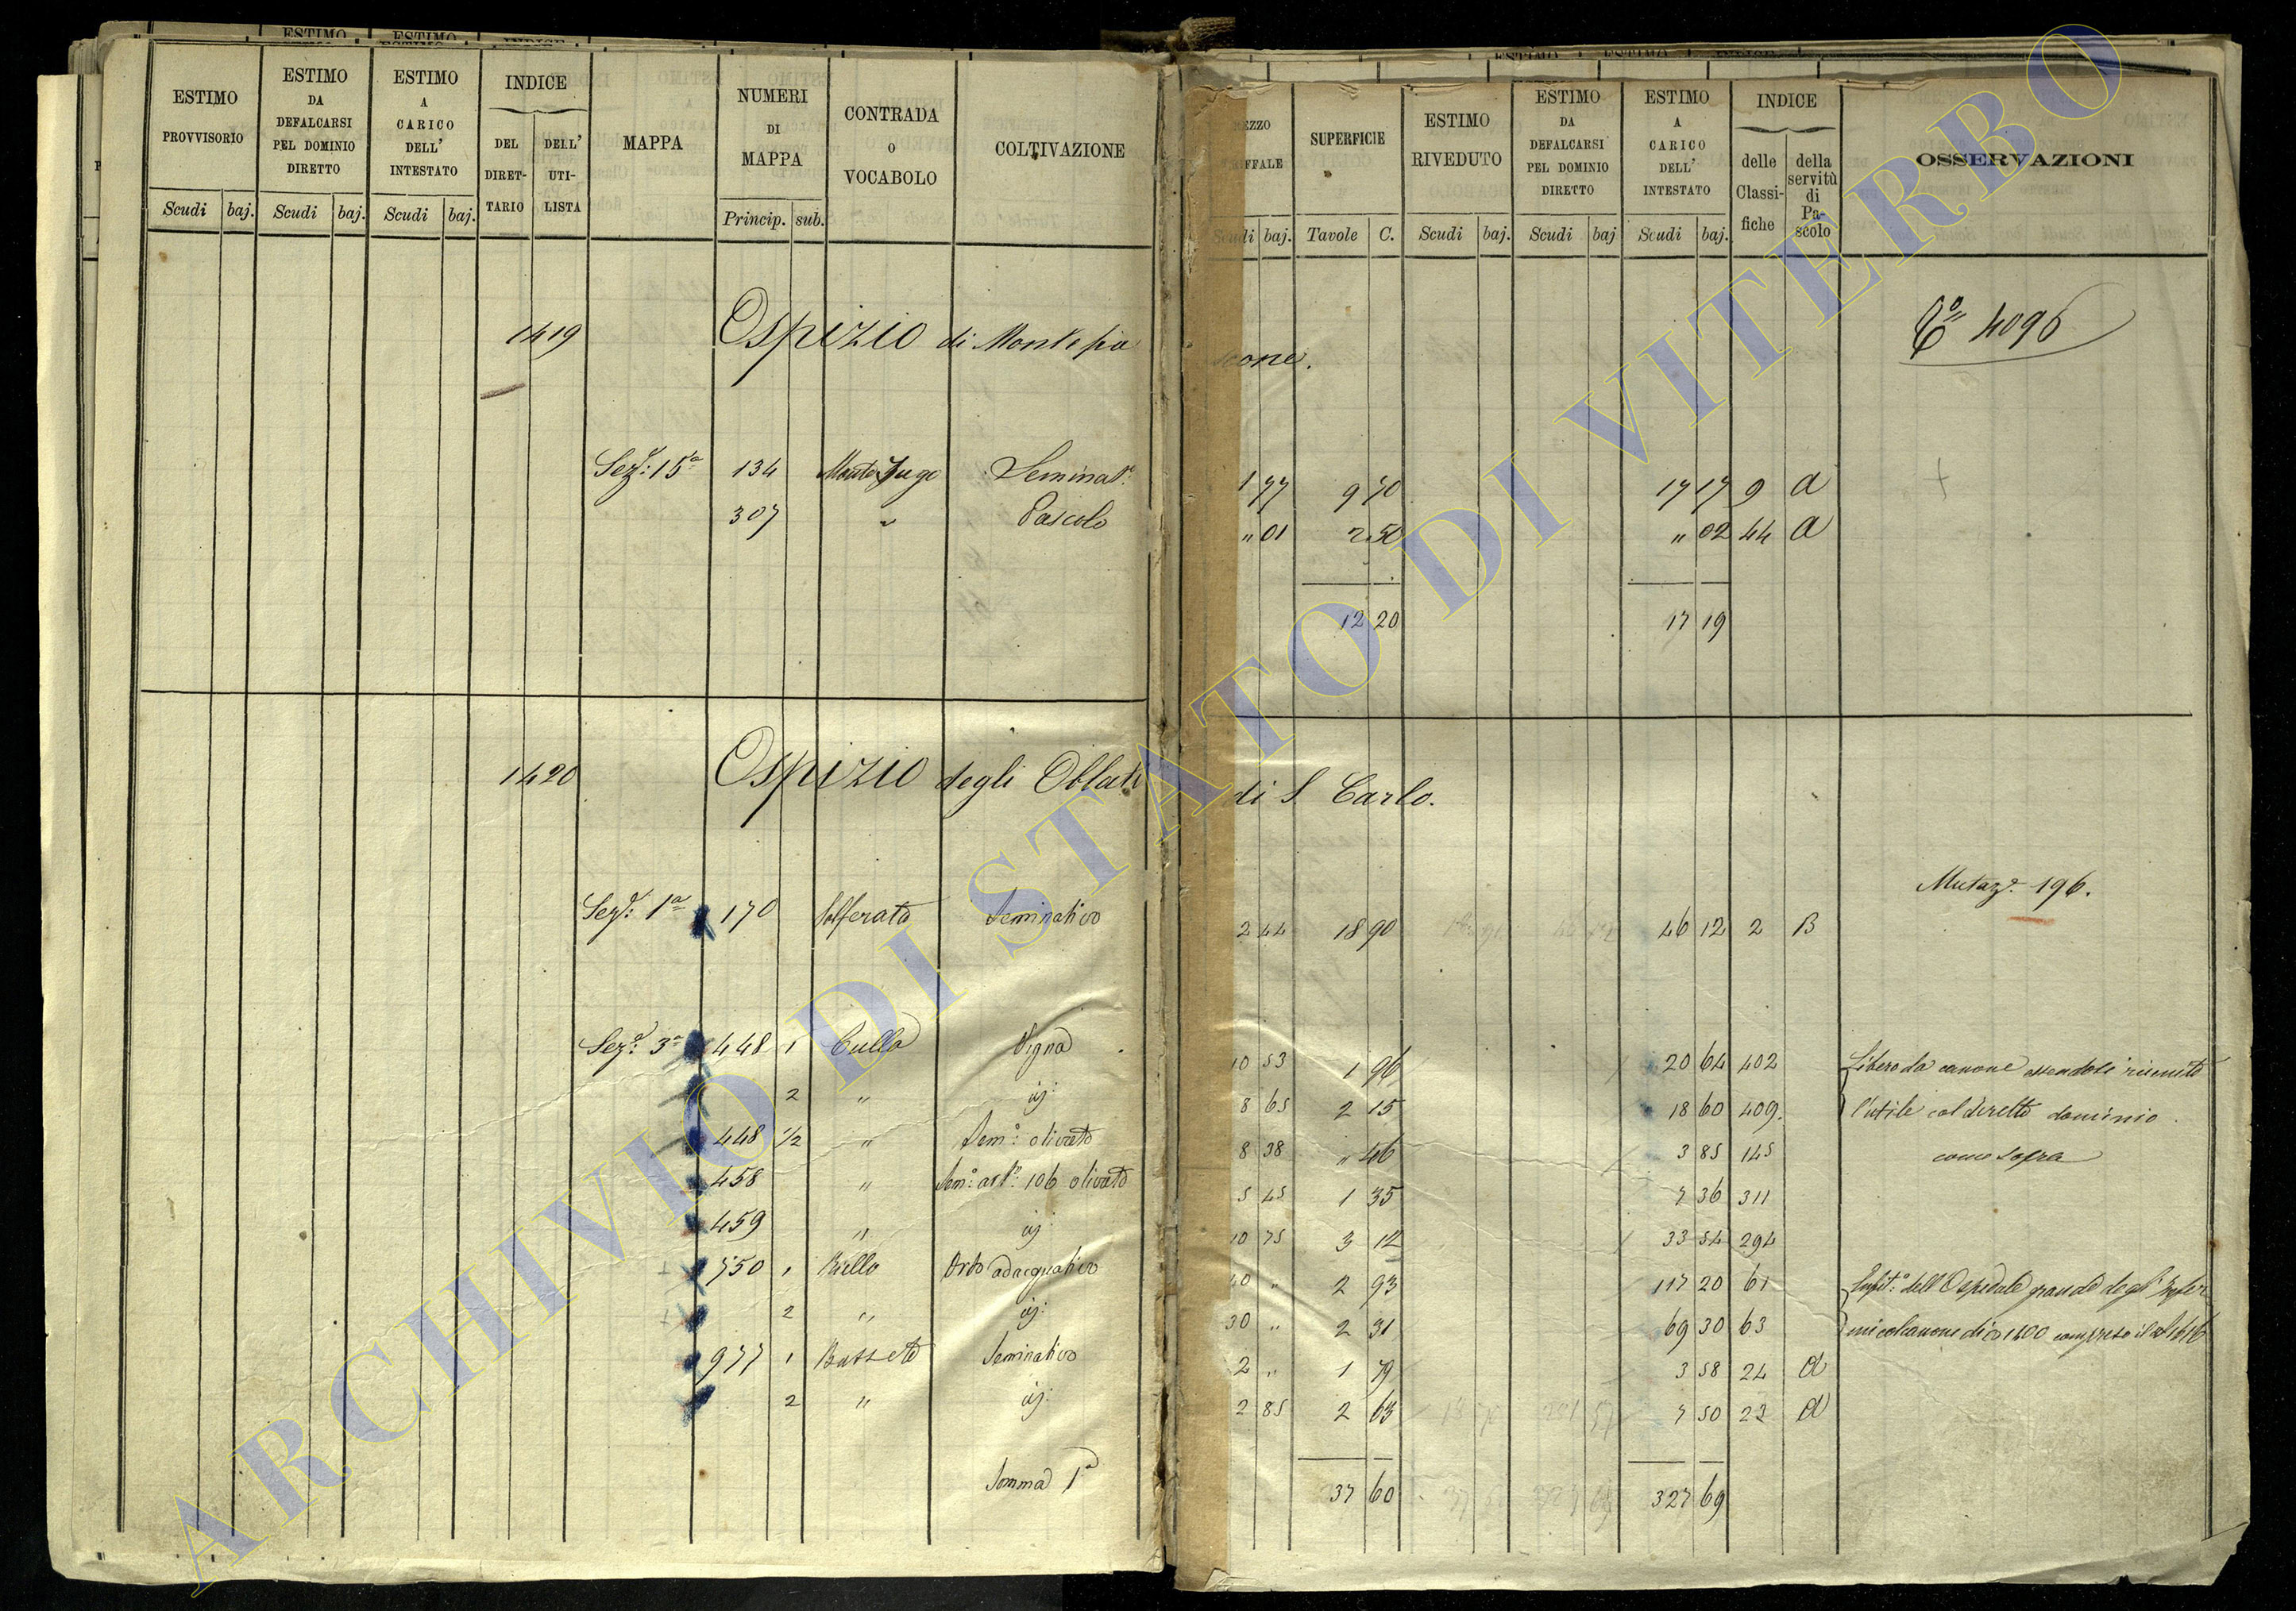 ESTIMO PROVVISORIO | ESTIMO DA DEFALCARSI PEL DOMINIO DIRETTO | ESTIMO A CARICO DELL' INTESTATO | INDICE DEL DIRETTARIO | DELL' UTILISTA | MAPPA | NUMERI DI MAPPA | CONTRADA O VOCABOLO | COLTIVAZIONE
Scudi baj. Scudi baj. Scudi baj. Princip. sub.
1419 Ospizio di Montefia
Sez.e: 15a 134 Monte Jugo Seminat.o
307 " Pascolo
1420 Ospizio degli Oblati
Sez.e: 1a 170 Solferata Seminativo
Sez.e: 3a 448 1 Cullo Vigna
2 " id:
448 1/2 " Sem.o: olivato
458 " Sem.o: art.o: 106 olivato
459 " id:
750 1 Riello Orto adacquativo
2 " id:
977 1 Busseto Seminativo
2 " id:
Somma 1a
EZZO FFALE | SUPERFICIE | ESTIMO RIVEDUTO | ESTIMO DA DEFALCARSI PEL DOMINIO DIRETTO | ESTIMO A CARICO DELL' INTESTATO | INDICE delle Classifiche | della servitù di Pascolo | OSSERVAZIONI
Scudi baj. Tavole C. Scudi baj. Scudi baj Scudi baj.
4096
scone.
1 77 9 70 17 17 9 A
" 01 2 50 " 02 44 A
12 20 17 19
di S. Carlo.
Mutaz.e 196.
2 44 18 90 46 12 2 B
10 53 1 96 20 64 402 Libero da canone essendosi riunito
8 65 2 15 18 60 409. l'utile col diretto dominio.
8 38 " 46 3 85 145 come sopra
5 45 1 35 7 36 311
10 75 3 12 33 54 294
40 " 2 93 117 20 61 dell'Ospedale grande degl'Infer
30 " 2 31 69 30 63 mi compreso il
2 " 1 79 3 58 24 A
2 85 2 63 7 50 22 A
37 60 327 69
ARCHIVIO DI STATO DI VITERBO